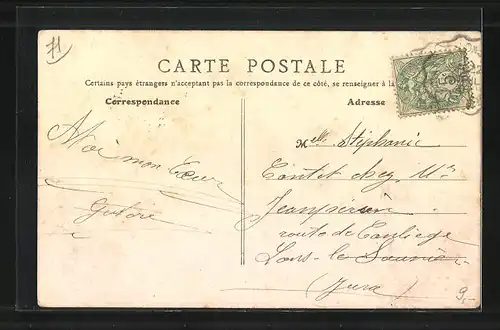 71
CARTE POSTALE
Certains pays étrangers n'acceptant pas la correspondance de ce côté, se renseigner à la
Correspondance
Adresse
Melle Stéphanie
A toi mon Cœur
chez Mr
route de Conliège
Lons-le-Saunier
(Jura)
9.-